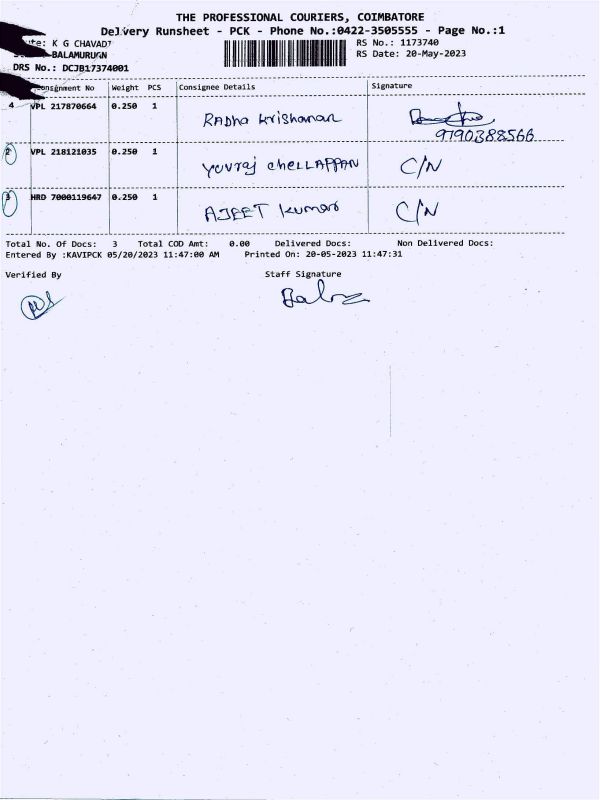 THE PROFESSIONAL COURIERS, COIMBATORE
Delivery Runsheet - PCK - Phone No.:0422-3505555 - Page No.:1
K G CHAVADI RS No.: 1173740
BALAMURUGN RS Date: 20-May-2023
DRS No.: DCJB17374001
Consignment No Weight PCS Consignee Details Signature
VPL 217870664 0.250 1 RADha krishanan
9790388566
2 VPL 218121035 0.250 1 yuvraj cheLLAPPAN C/N
3 HRD 7000119647 0.250 1 AJEET kumar C/N
Total No. Of Docs: 3 Total COD Amt: 0.00 Delivered Docs: Non Delivered Docs:
Entered By :KAVIPCK 05/20/2023 11:47:00 AM Printed On: 20-05-2023 11:47:31
Verified By Staff Signature